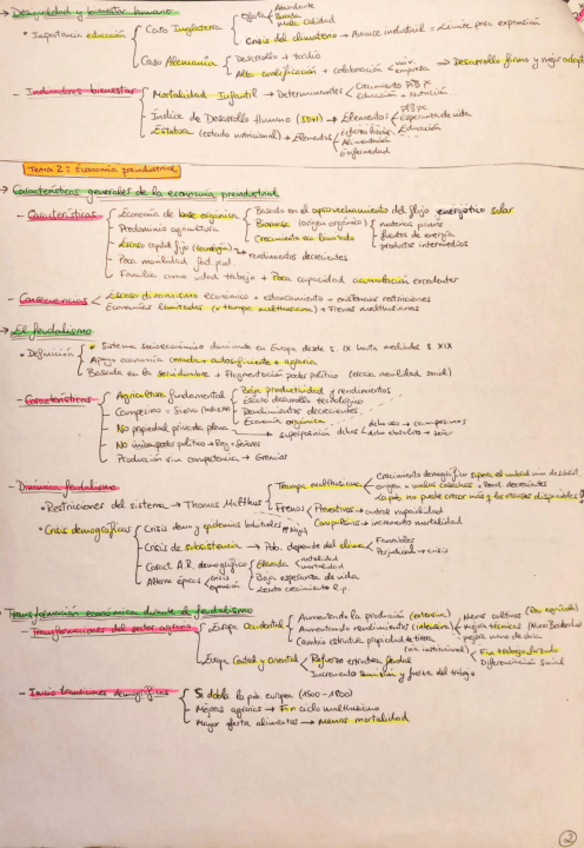 → Desigualdad y bienestar humano
• Importancia educación
Caso Inglaterra
Oferta
Abundante
Barata
Mala calidad
Crisis del climaterio → Avance industrial = Límite para expansión
Caso Alemania
Desarrollo + tardío
Alta cualificación + colaboración
univ.
empresa
→ Desarrollo firme y mejor adapt
- Indicadores bienestar
Mortalidad Infantil → Determinantes
Crecimiento PIBpc
Educación + Nutrición
Índice de Desarrollo Humano (IDH) → Elementos
PIBpc
Esperanza de vida
Educación
Estatura (estado nutricional) → Elementos
Esfuerzo físico
Alimentación
Enfermedad
Tema 2: Economía preindustrial
→ Características generales de la economía preindustrial
- Características
Economía de base orgánica
Basada en el aprovechamiento del flujo energético solar
Biomasa (origen orgánico)
materias primas
fuentes de energía
productos intermedios
Crecimiento eco. limitado
Predominio agricultura
Escaso capital fijo (tecnología) → rendimientos decrecientes
Poca movilidad fact. prod.
Familia como udad trabajo + Poca capacidad acumulación excedentes
- Consecuencias
Escaso dinamismo económico + estancamiento + existencias restricciones
Economías limitadas (→ trampa malthusiana) + Frenos malthusianos
→ El feudalismo
• Definición
Sistema socioeconómico dominante en Europa desde s. IX hasta mediados s. XIX
Apoya economía cerrada + autosuficiente + agraria
Basada en la servidumbre + Fragmentación poder político (escasa movilidad social)
- Características
Agricultura fundamental
Baja productividad y rendimientos
Escaso desarrollo tecnológico
Rendimientos decrecientes
Economía orgánica
Campesino = Siervo
No propiedad privada plena → superposición dchos
dcho uso → campesinos
dcho absoluto → señor
No único poder político → Rey + Señores
Producción sin competencia → Gremios
- Dinámica feudalismo
• Restricciones del sistema → Thomas Malthus
Trampa malthusiana
Crecimiento demográfico supera el umbral
origen → malas cosechas + Rend. decrecientes
La pob. no puede crecer más q los recursos disponibles
Frenos
Preventivos → control nupcialidad
Compulsivos → incremento mortalidad
• Crisis demográficas
Crisis demo y epidemias habituales
Crisis de subsistencia → Pob. depende del clima
Favorables
Perjudicial → crisis
Caract. A.R. demográfico
Elevada
natalidad
mortalidad
Baja esperanza de vida
Lento crecimiento l.p.
Alterna épocas
crisis
expansión
→ Transformación económica durante el feudalismo
- Transformaciones del sector agrario
Europa Occidental
Aumentando la producción (extensiva)
Aumentando rendimientos (intensiva)
Nuevos cultivos (Rev agrícola)
mejora técnicas
mejora mano de obra
Cambio estructura propiedad de tierra
(vía institucional)
Fin trabajo forzado
Diferenciación social
Europa Central y oriental
Refuerzo estructura feudal
Incremento sumisión y fuerza del trabajo
- Inicio transiciones demográficas
Se dobla la pob. europea (1500-1800)
Mejoras agrarias → Fin ciclo malthusiano
Mayor oferta alimentos → Menos mortalidad
2